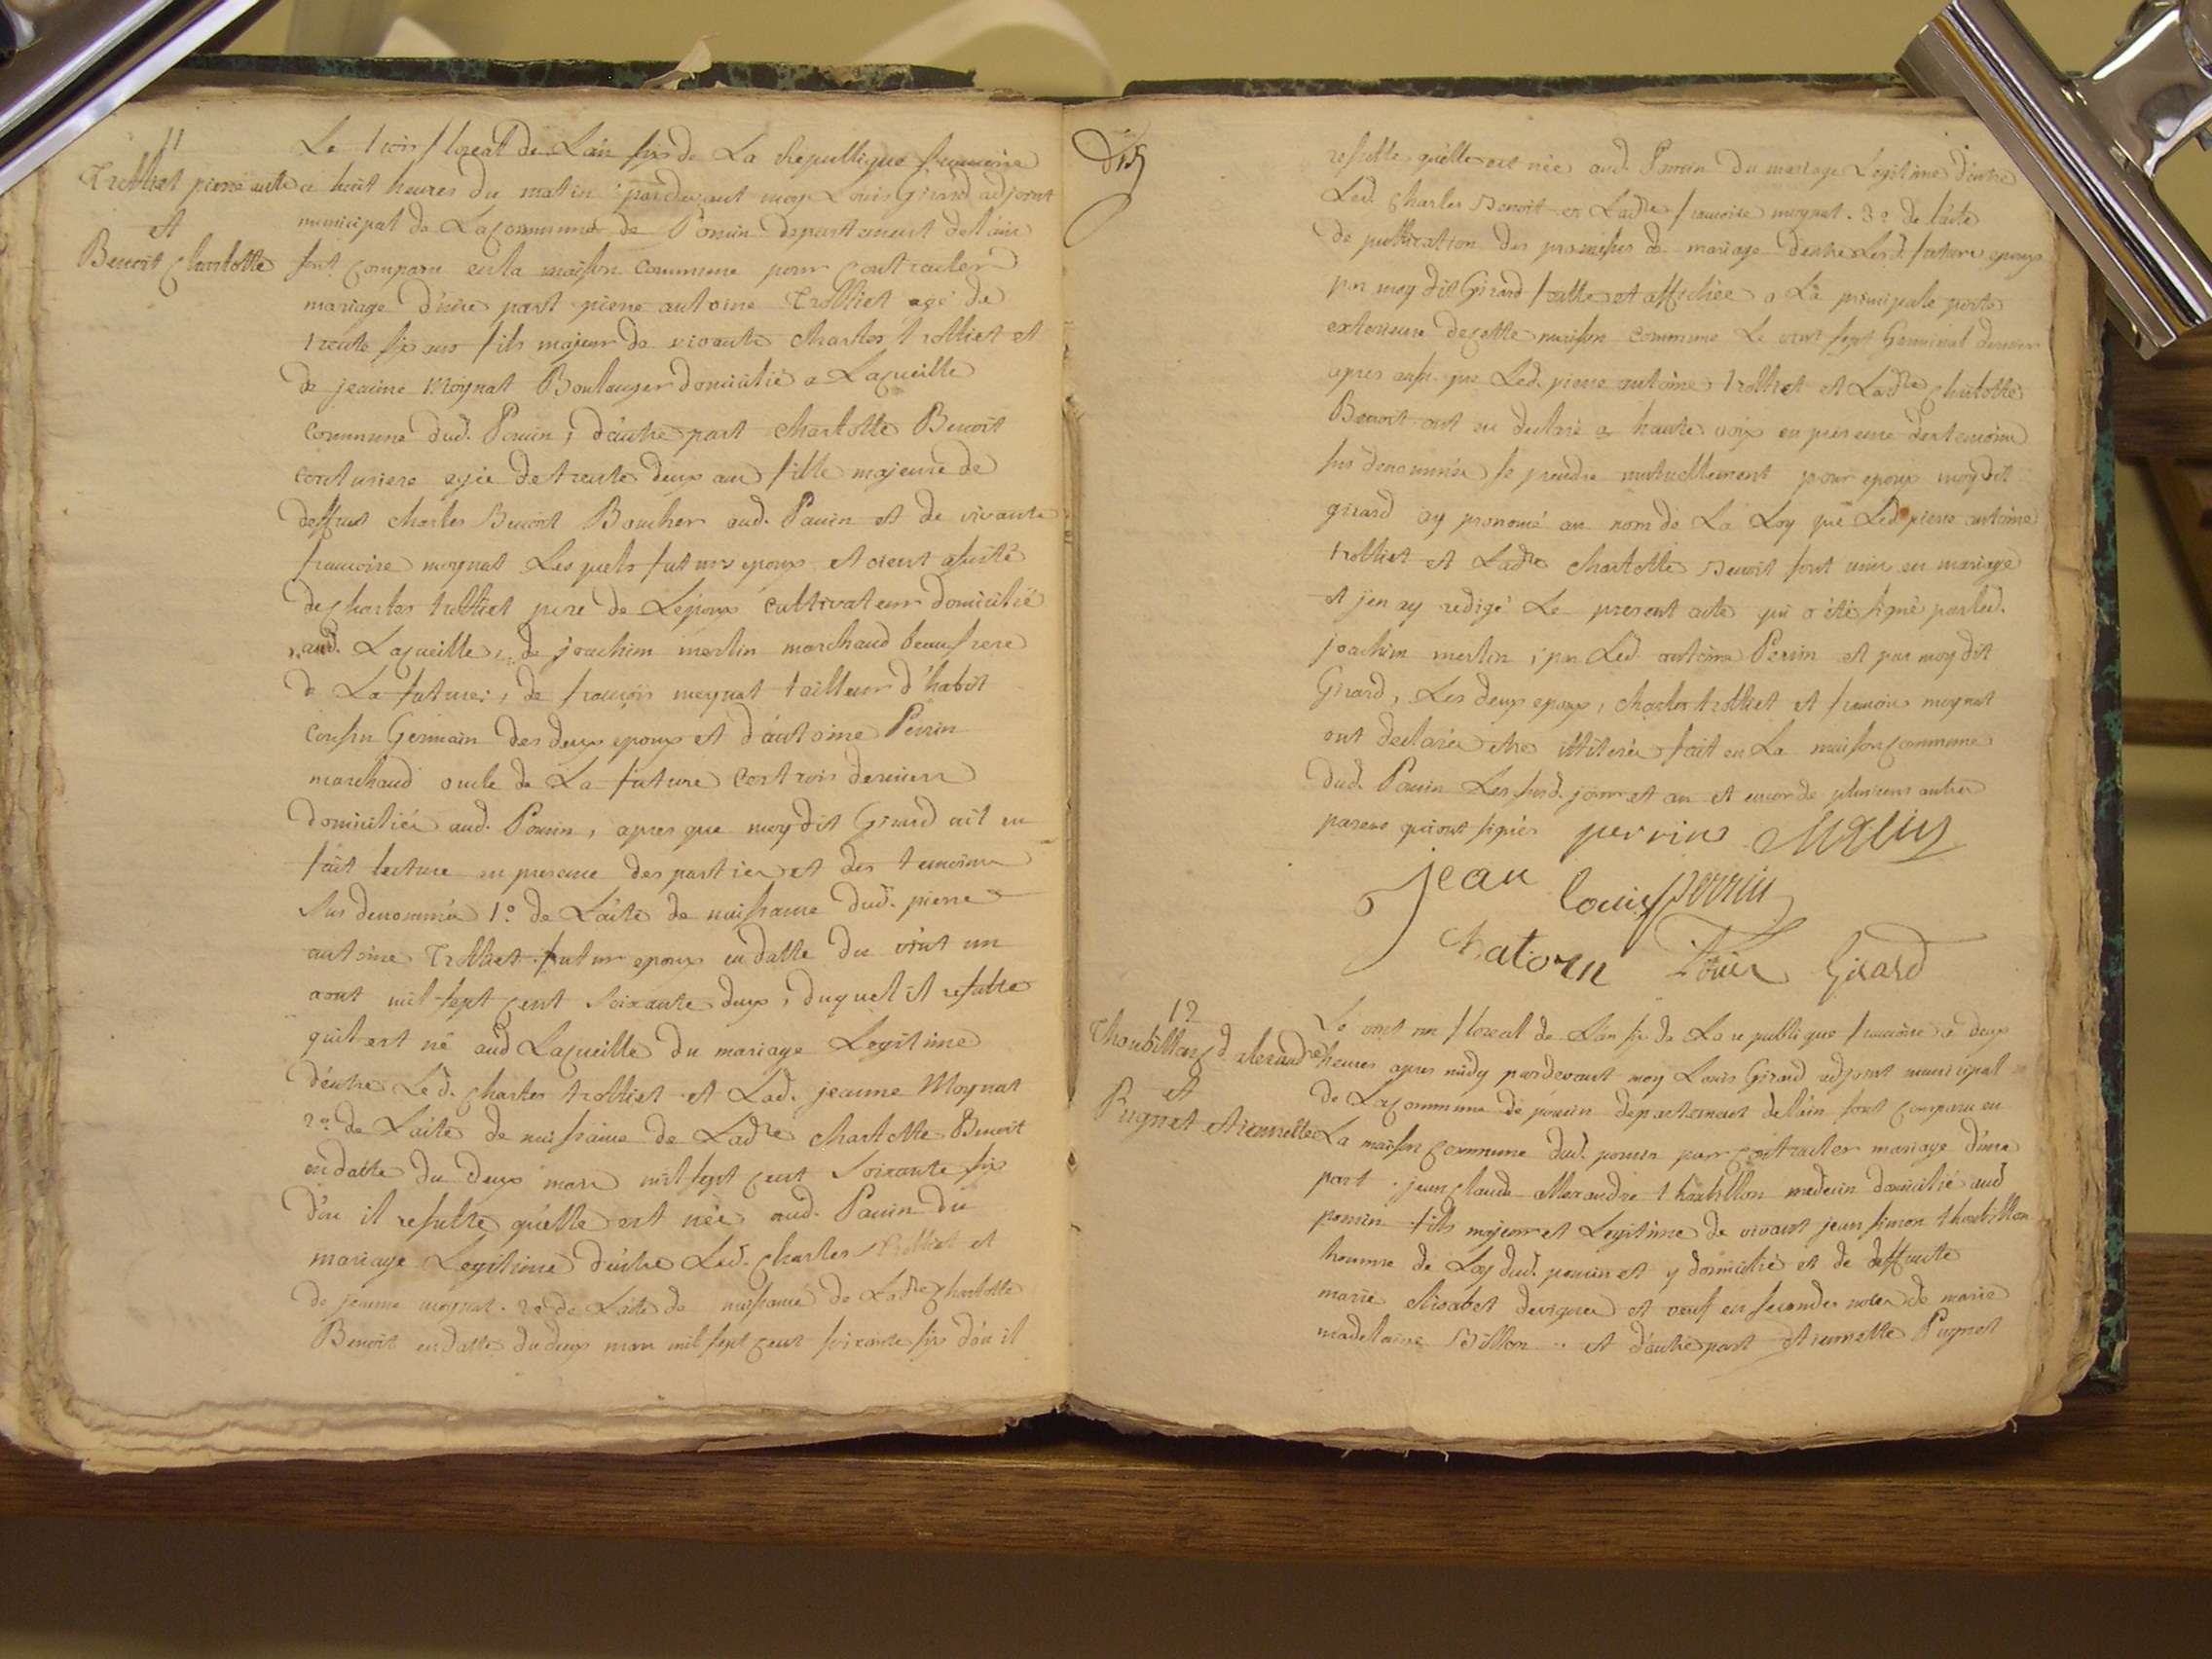 11
Trolliet pierre ante
et
Benoit Charlotte
Le trois floreal de L'an six de La republique francoise
a huit heures du matin pardevant moy Louis Girard adjoint
municipal de La commune de Poncin departement de l'ain
sont comparu en la maison commune pour contracter
mariage d'une part pierre antoine Trolliet agé de
trente six ans fils majeur de vivants charles trolliet et
de jeanne Moynat Boulanger domicilié a Lacueille
commune dud. Poncin, d'autre part charlotte Benoit
couturiere agée de trente deux ans fille majeure de
deffunt charles Benoit Boucher aud. Poncin et de vivante
francoise moynat Lesquels futurs epoux etoient assisté
de charles trolliet pere de L'epoux cultivateur domicilié
aud. Lacueille, de joachim merlin marchand beaufrere
de La future, de francois moynat tailleur d'habit
cousin Germain des deux epoux et d'antoine Perrin
marchand oncle de La future ces trois derniers
domiciliés aud. Poncin, apres que moy dit Girard ait eu
fait lecture en presence des parties et des temoins
sus denommés 1º. de L'acte de naissance dud. pierre
antoine Trolliet futur epoux en datte du vint un
aout mil sept cent soixante deux, duquel il resulte
quil est né aud Lacueille du mariage Legitime
d'entre Led. Charles trolliet et Lad. jeanne Moynat
2º. de L'acte de naissance de Ladte charlotte Benoit
en datte du deux mars mil sept cent soixante six
d'ou il resulte qu'elle est née aud. Poncin du
mariage Legitime d'entre Led. Charles Trolliet et
de jeanne moynat. 2º de L'acte de naissance de Ladte Charlotte
Benoit en datte du deux mars mil sept cent soixante six d'ou il
resulte qu'elle est née aud. Poncin du mariage Legitime d'entre
Led. Charles Benoit et Ladte francoise moynat. 3º. de l'acte
de publication des promesses de mariage d'entre Lesd. futurs epoux
par moy dit Girard faite et affichée a La principale porte
exterieure de cette maison commune Le vint sept Germinal dernier
apres aussi que Led. pierre antoine trolliet et Ladte Charlotte
Benoit ont eu declaré a haute voix en presence des temoins
sus denommés se prendre mutuellement pour epoux moy dit
girard ay prononcé au nom de La Loy que Led pierre antoine
trolliet et Ladte charlotte Benoit sont unis en mariage
et j'en ay redigé Le present acte qui a été signé par led.
joachim merlin, par Led. antoine Perrin et par moy dit
Girard, Les deux epoux, charles trolliet et francois moynat
ont declarés etre illiterés fait en La maison commune
dud. Poncin Les susd. jour et an et encor de plusieurs autres
parens qui ont signés perrin Merlin
jean louis perrin
chatorn Girard
12
Thoubillon alexandre
et
Pugnet etiennette
Le vint un floreal de L'an six de La republique francoise a deux
heures apres midy pardevant moy Louis Girard adjoint municipal
de La commune de poncin departement de l'ain sont comparu en
La maison commune dud. poncin pour contracter mariage d'une
part jean claude allexandre thoubillon medecin domicilié aud
poncin fils majeur et Legitime de vivant jean simon thoubillon
homme de Loy dud. poncin et y domicilié et de deffunte
marie elisabet devignes et veuf en secondes noces de marie
madelaine Billon et d'autre part etiennette Pugnet